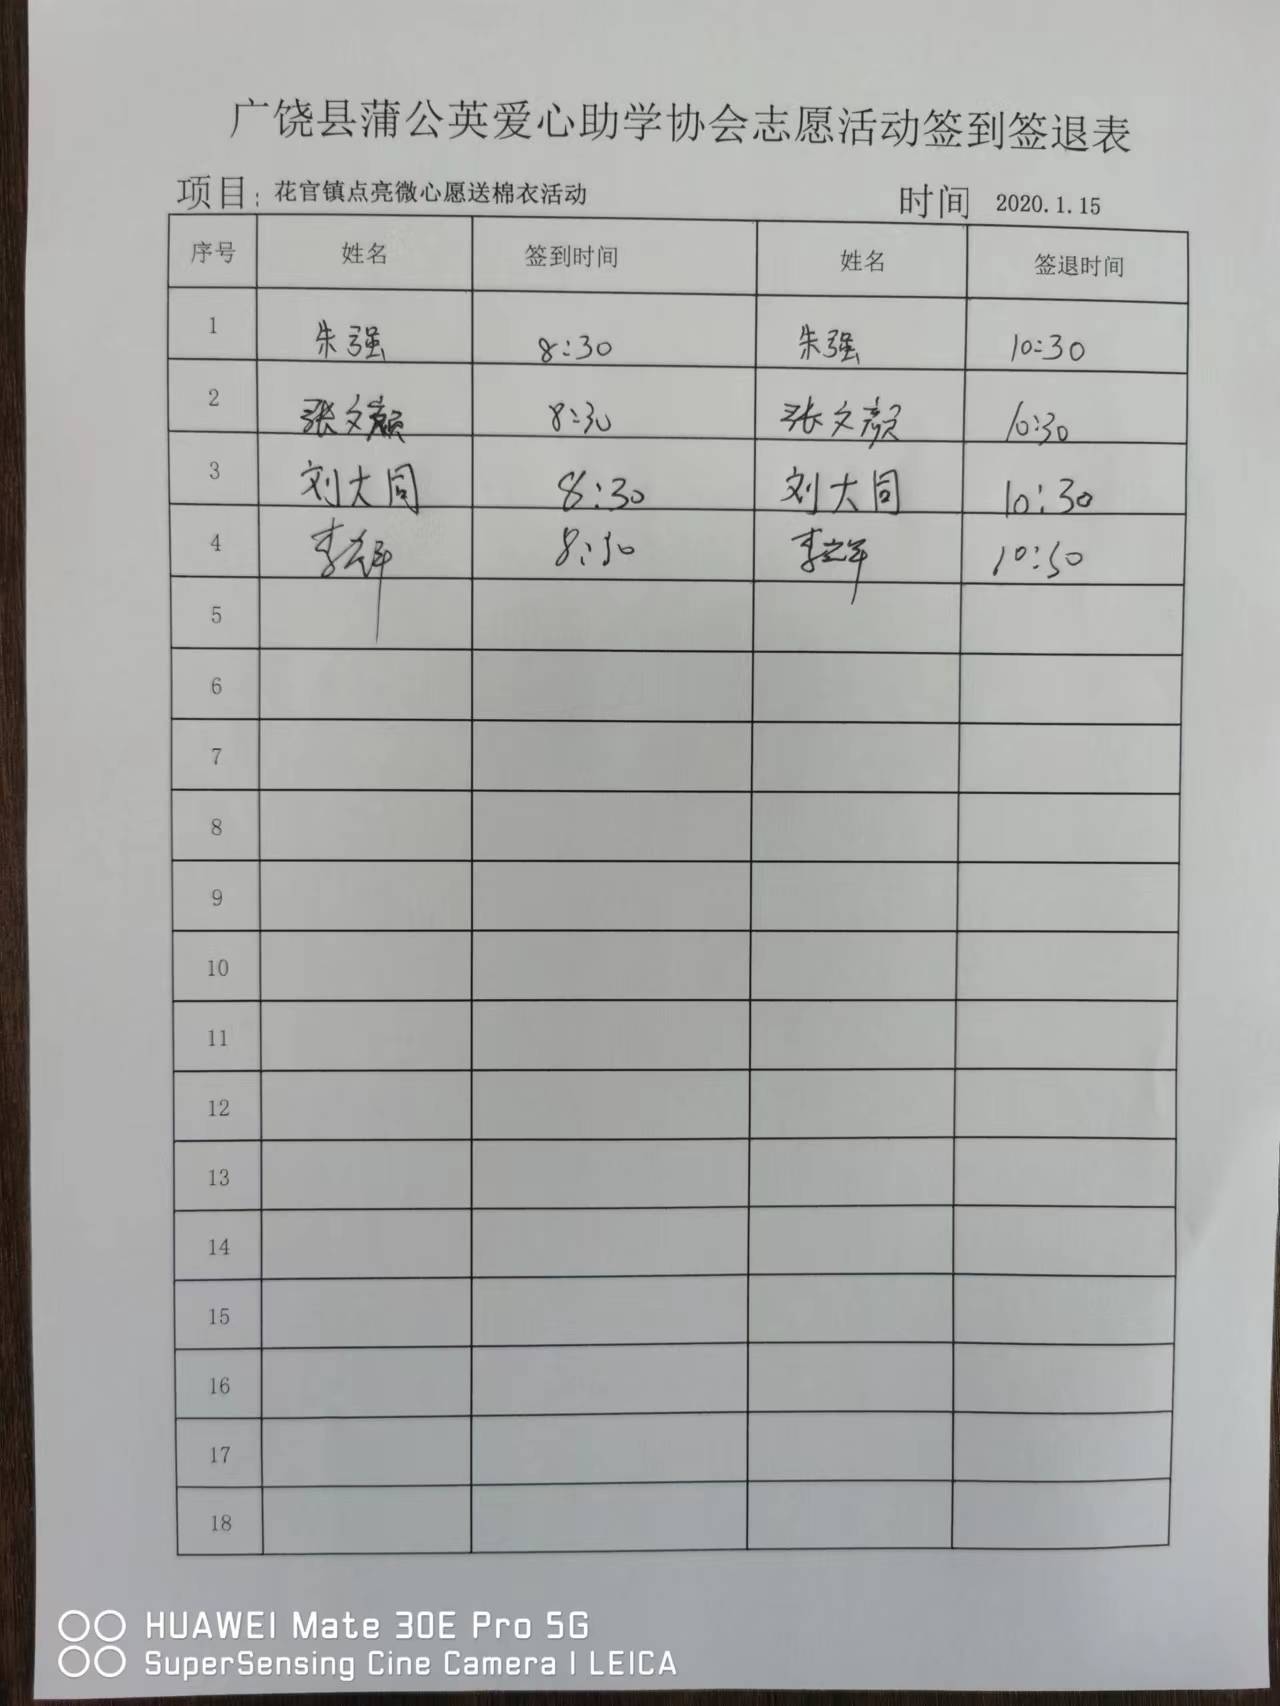 广饶县蒲公英爱心助学协会志愿活动签到签退表
项目：花官镇点亮微心愿送棉衣活动 时间 2020.1.15
序号 姓名 签到时间 姓名 签退时间
1 朱强 8:30 朱强 10:30
2 张文颜 8:30 张文颜 10:30
3 刘大同 8:30 刘大同 10:30
4 李 8:30 李 10:30
5
6
7
8
9
10
11
12
13
14
15
16
17
18
HUAWEI Mate 30E Pro 5G
SuperSensing Cine Camera | LEICA